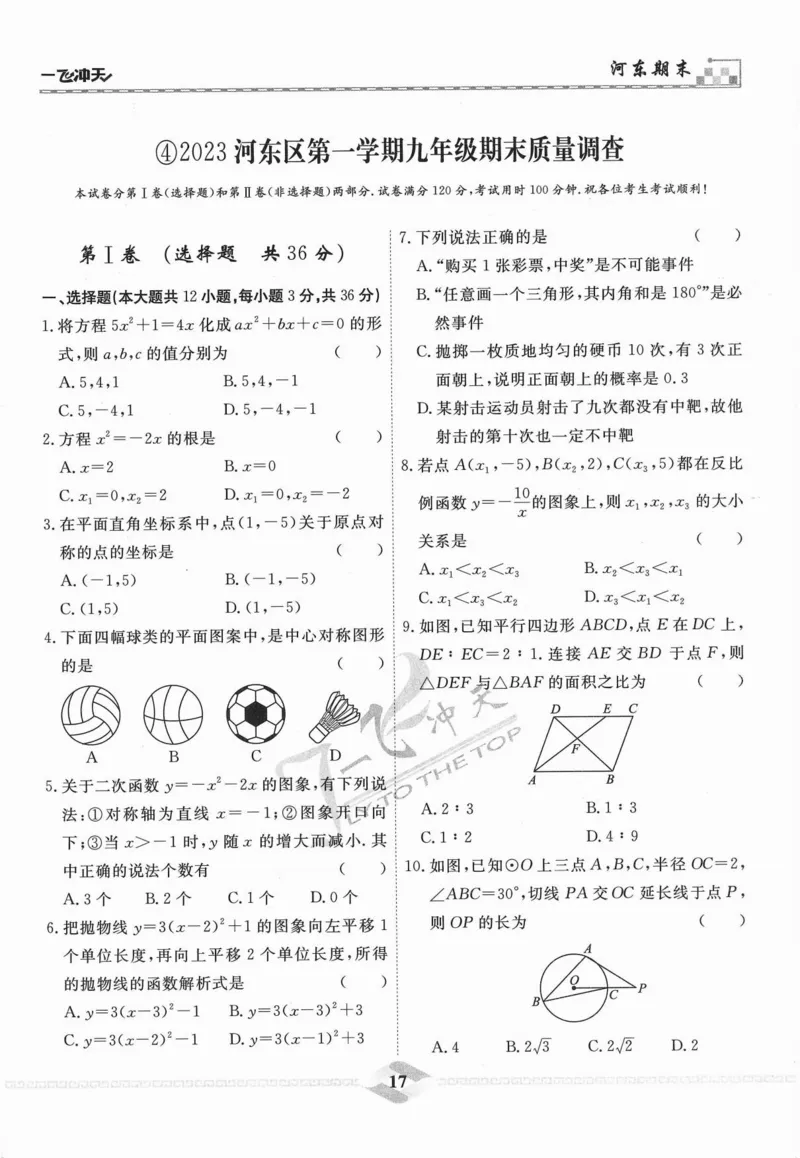 一飞冲天
河东期末
④2023河东区第一学期九年级期末质量调查
本试卷分第Ⅰ卷(选择题)和第Ⅱ卷(非选择题)两部分.试卷满分120分,考试用时100分钟.祝各位考生考试顺利!
第Ⅰ卷 (选择题 共36分)
一、选择题(本大题共12小题,每小题3分,共36分)
1.将方程5x²+1=4x化成ax²+bx+c=0的形
式,则a,b,c的值分别为 ( )
A.5,4,1 B.5,4,-1
C.5,-4,1 D.5,-4,-1
2.方程x²=-2x的根是 ( )
A.x=2 B.x=0
C.x₁=0,x₂=2 D.x₁=0,x₂=-2
3.在平面直角坐标系中,点(1,-5)关于原点对
称的点的坐标是 ( )
A.(-1,5) B.(-1,-5)
C.(1,5) D.(1,-5)
4.下面四幅球类的平面图案中,是中心对称图形
的是 ( )
A B C D
5.关于二次函数y=-x²-2x的图象,有下列说
法:①对称轴为直线x=-1;②图象开口向
下;③当x>-1时,y随x的增大而减小.其
中正确的说法个数有 ( )
A.3个 B.2个 C.1个 D.0个
6.把抛物线y=3(x-2)²+1的图象向左平移1
个单位长度,再向上平移2个单位长度,所得
的抛物线的函数解析式是 ( )
A.y=3(x-3)²-1 B.y=3(x-3)²+3
C.y=3(x-2)²-1 D.y=3(x-1)²+3
7.下列说法正确的是 ( )
A.“购买1张彩票,中奖”是不可能事件
B.“任意画一个三角形,其内角和是180°”是必
然事件
C.抛掷一枚质地均匀的硬币10次,有3次正
面朝上,说明正面朝上的概率是0.3
D.某射击运动员射击了九次都没有中靶,故他
射击的第十次也一定不中靶
8.若点A(x₁,-5),B(x₂,2),C(x₃,5)都在反比
例函数y=-10/x的图象上,则x₁,x₂,x₃的大小
关系是 ( )
A.x₁<x₂<x₃ B.x₂<x₃<x₁
C.x₁<x₃<x₂ D.x₃<x₁<x₂
9.如图,已知平行四边形ABCD,点E在DC上,
DE∶EC=2∶1.连接AE交BD于点F,则
△DEF与△BAF的面积之比为 ( )
D E C
F
A B
A.2∶3 B.1∶3
C.1∶2 D.4∶9
10.如图,已知⊙O上三点A,B,C,半径OC=2,
∠ABC=30°,切线PA交OC延长线于点P,
则OP的长为 ( )
A
O
P
C
B
A.4 B.2√3 C.2√2 D.2
一飞冲天
FLY TO THE TOP
17